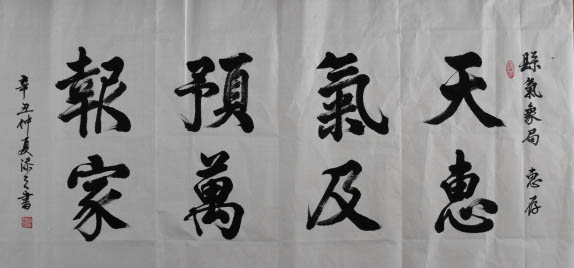 縣氣象局 惠存
天氣預報
惠及萬家
辛丑仲夏 之書